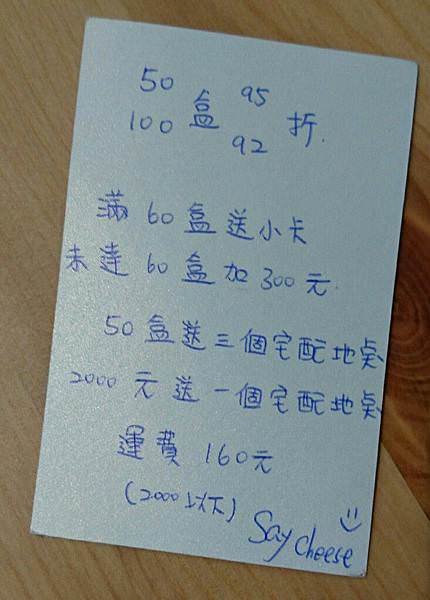 50 盒 95 折.
100 盒 92 折.
滿 60 盒送小卡
未達 60 盒加 300 元.
50 盒送三個宅配地點
2000 元送一個宅配地點
運費 160元
(2000以下)
Say cheese